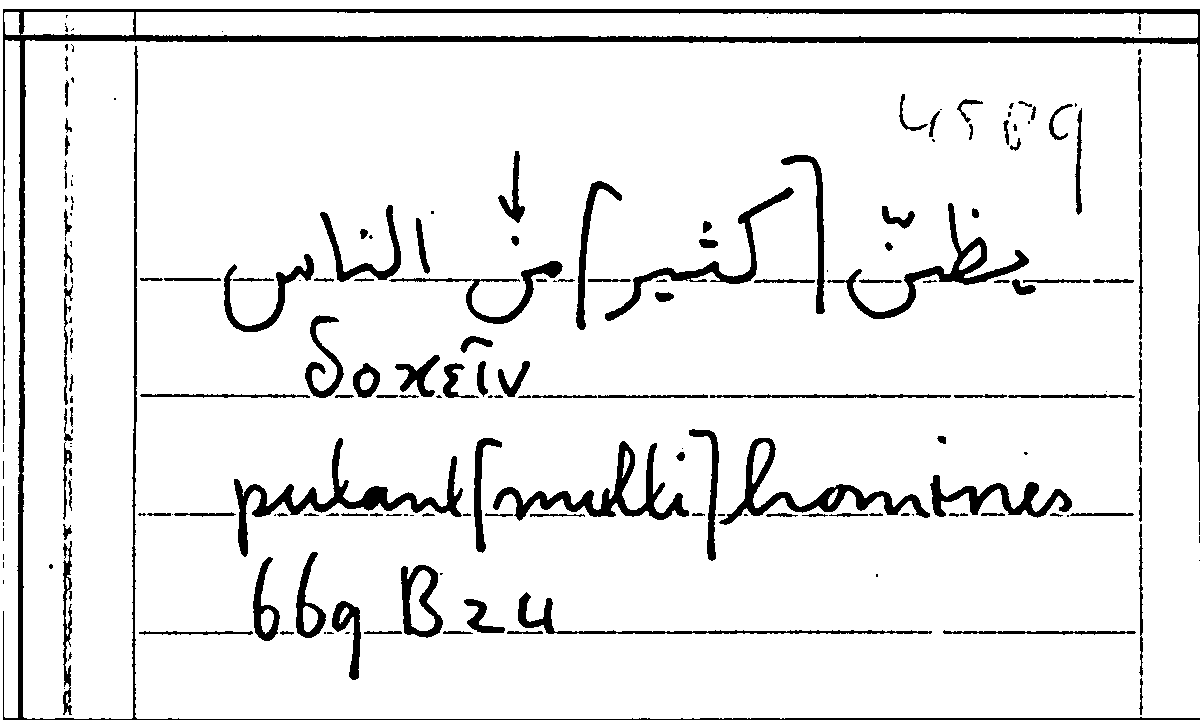 4589
يظنّ [كثير] من الناس
δοκεῖν
putant [multi] homines
669 B 24